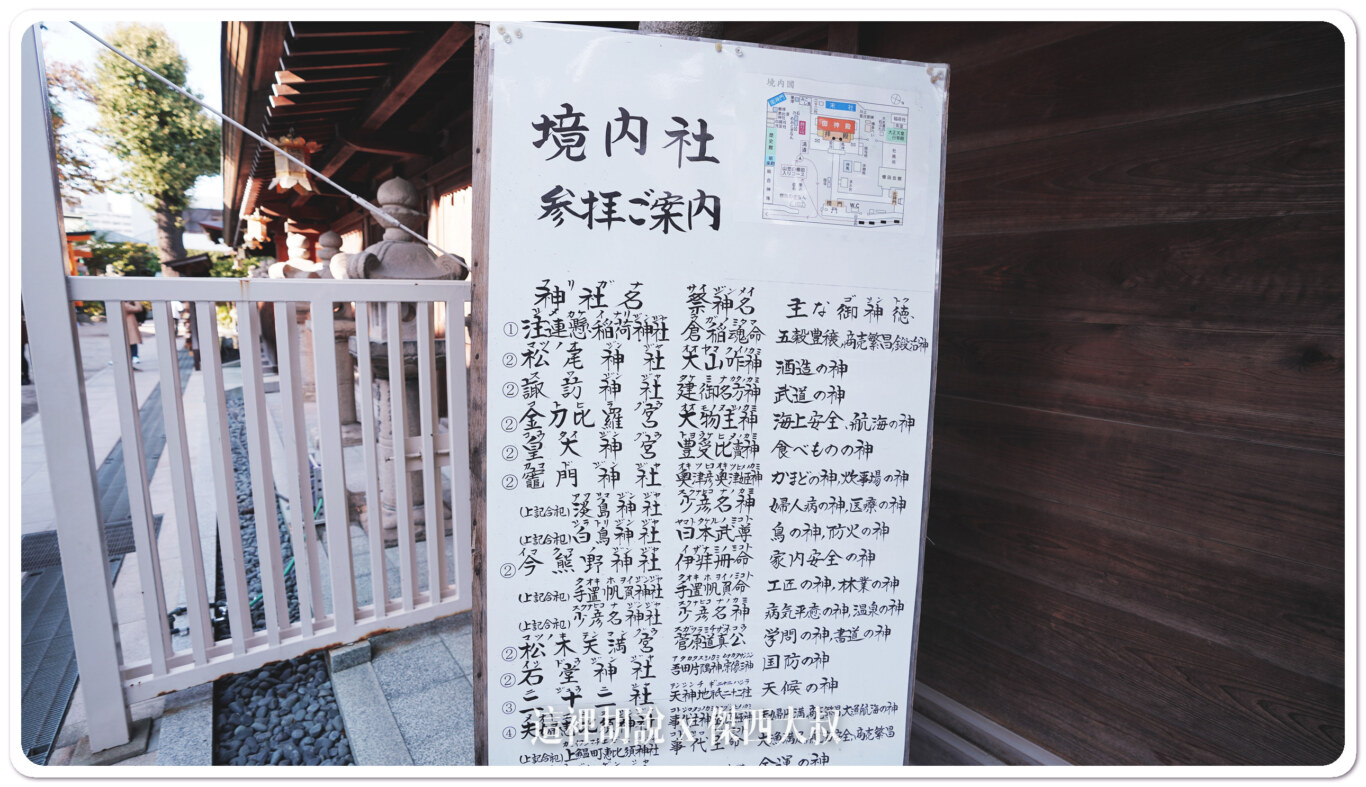 境内社
参拝ご案内
境内図
神社名 祭神名 主な御神徳
① 注連懸稲荷神社 倉稲魂命 五穀豊穣、商売繁昌、鍛冶神
② 松尾神社 大山咋神 酒造の神
② 諏訪神社 建御名方神 武道の神
② 金力比羅宮 大物主神 海上安全、航海の神
② 皇大神宮 豊受比賣神 食べものの神
② 竈門神社 奥津彦奥津姫神 かまどの神、炊事場の神
(上記合祀) 淡島神社 少彦名神 婦人病の神、医療の神
(上記合祀) 白鳥神社 日本武尊 鳥の神、防火の神
② 今熊野神社 伊弉冊命 家内安全の神
(上記合祀) 手置帆負神社 手置帆負命 工匠の神、林業の神
(上記合祀) 少彦名神社 少彦名神 病気平癒の神、温泉の神
② 松木天満宮 菅原道真公 学問の神、書道の神
② 石堂神社 国防の神
③ 二十二社 天神地祇二十二社 天候の神
④
(上記合祀) 上鰮町恵比須神社 事代主命
金運の神
這裡胡說 x 傑西大叔